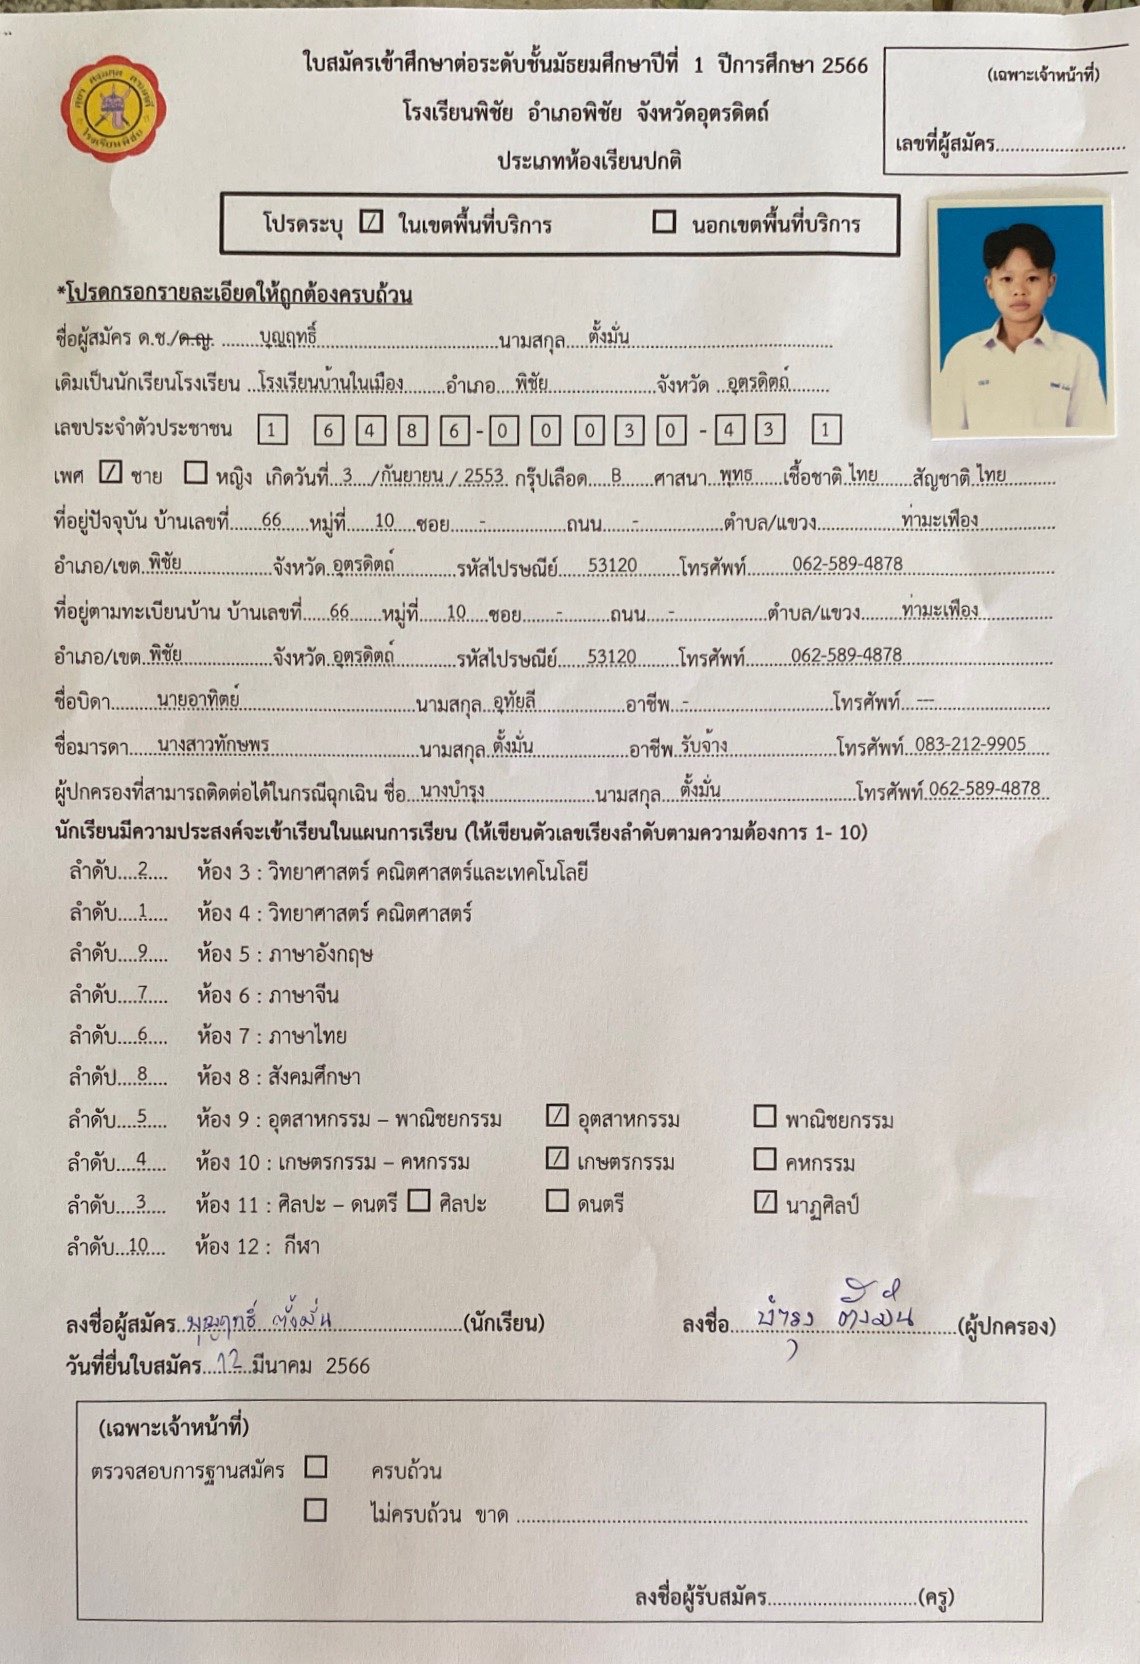 ใบสมัครเข้าศึกษาต่อระดับชั้นมัธยมศึกษาปีที่ 1 ปีการศึกษา 2566
(เฉพาะเจ้าหน้าที่)
โรงเรียนพิชัย อำเภอพิชัย จังหวัดอุตรดิตถ์
เลขที่ผู้สมัคร..........................
ประเภทห้องเรียนปกติ
โรงเรียนพิชัย
โปรดระบุ ☑ ในเขตพื้นที่บริการ ☐ นอกเขตพื้นที่บริการ
*โปรดกรอกรายละเอียดให้ถูกต้องครบถ้วน
ชื่อผู้สมัคร ด.ช./ด.ญ. ........บุญฤทธิ์........นามสกุล....ตั้งมั่น........
เดิมเป็นนักเรียนโรงเรียน ...โรงเรียนบ้านในเมือง........อำเภอ...พิชัย........จังหวัด ...อุตรดิตถ์........
เลขประจำตัวประชาชน 1 6 4 8 6 - 0 0 0 3 0 - 4 3 1
เพศ ☑ ชาย ☐ หญิง เกิดวันที่...3.../กันยายน./.2553. กรุ๊ปเลือด....B......ศาสนา..พุทธ.....เชื้อชาติ.ไทย......สัญชาติ.ไทย........
ที่อยู่ปัจจุบัน บ้านเลขที่......66.....หมู่ที่.....10...ซอย.....-........ถนน.....-........ตำบล/แขวง........ท่ามะเฟือง........
อำเภอ/เขต..พิชัย........จังหวัด.อุตรดิตถ์........รหัสไปรษณีย์.....53120.......โทรศัพท์........062-589-4878........
ที่อยู่ตามทะเบียนบ้าน บ้านเลขที่.....66.....หมู่ที่.....10....ซอย......-........ถนน.....-........ตำบล/แขวง.......ท่ามะเฟือง........
อำเภอ/เขต..พิชัย........จังหวัด.อุตรดิตถ์........รหัสไปรษณีย์.....53120.......โทรศัพท์........062-589-4878........
ชื่อบิดา........นายอาทิตย์........นามสกุล..อุทัยลี........อาชีพ..-........โทรศัพท์...---........
ชื่อมารดา.....นางสาวทักษพร........นามสกุล.ตั้งมั่น........อาชีพ.รับจ้าง........โทรศัพท์..083-212-9905....
ผู้ปกครองที่สามารถติดต่อได้ในกรณีฉุกเฉิน ชื่อ...นางบำรุง........นามสกุล....ตั้งมั่น........โทรศัพท์.062-589-4878..
นักเรียนมีความประสงค์จะเข้าเรียนในแผนการเรียน (ให้เขียนตัวเลขเรียงลำดับตามความต้องการ 1- 10)
ลำดับ....2.... ห้อง 3 : วิทยาศาสตร์ คณิตศาสตร์และเทคโนโลยี
ลำดับ....1.... ห้อง 4 : วิทยาศาสตร์ คณิตศาสตร์
ลำดับ....9.... ห้อง 5 : ภาษาอังกฤษ
ลำดับ....7.... ห้อง 6 : ภาษาจีน
ลำดับ....6.... ห้อง 7 : ภาษาไทย
ลำดับ....8.... ห้อง 8 : สังคมศึกษา
ลำดับ....5.... ห้อง 9 : อุตสาหกรรม – พาณิชยกรรม ☑ อุตสาหกรรม ☐ พาณิชยกรรม
ลำดับ....4.... ห้อง 10 : เกษตรกรรม – คหกรรม ☑ เกษตรกรรม ☐ คหกรรม
ลำดับ....3.... ห้อง 11 : ศิลปะ – ดนตรี ☐ ศิลปะ ☐ ดนตรี ☑ นาฏศิลป์
ลำดับ...10.... ห้อง 12 : กีฬา
ลงชื่อผู้สมัคร..บุญฤทธิ์ ตั้งมั่น........(นักเรียน) ลงชื่อ.....บำรุง ตั้งมั่น........(ผู้ปกครอง)
วันที่ยื่นใบสมัคร....12...มีนาคม 2566
(เฉพาะเจ้าหน้าที่)
ตรวจสอบการฐานสมัคร ☐ ครบถ้วน
☐ ไม่ครบถ้วน ขาด ........................................
ลงชื่อผู้รับสมัคร..............................(ครู)